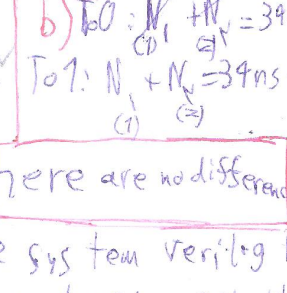 b) To0: N₁ + N₂ = 34
(1) (2)
To1: N₁ + N₂ = 34ns
(1) (2)
here are no differenc
e System verilog